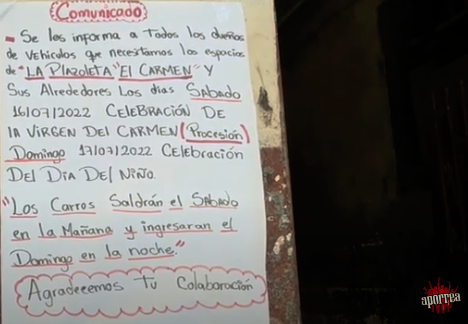 Comunicado
- Se les informa a Todos los dueños
de Vehiculos que necesitamos los espacios
de "LA PLAZOLETA" "El CARMEN" Y
Sus Alrededores Los dias Sabado
16/07/2022 CeleBRACIÓN DE
la VIRGEN Del CARMEN (Procesión)
Domingo 17/07/2022 Celebración
DEL DIA Del NIÑO.
"Los Carros Saldrán el Sabado
en la Mañana y ingresaran el
Domingo en la noche."
Agradecemos Tu Colaboración
aporrea